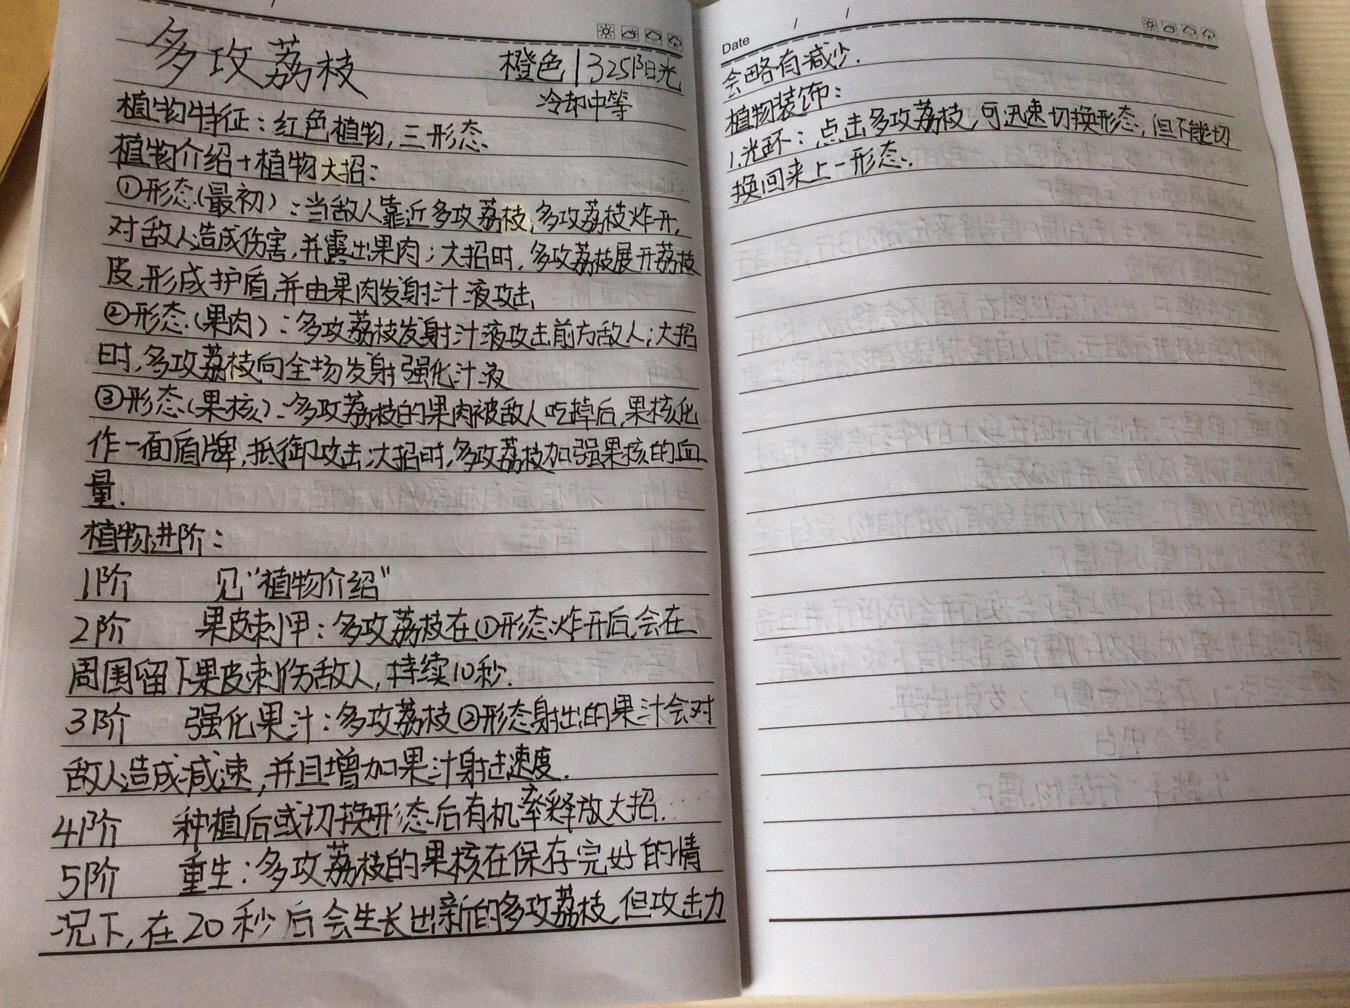 多攻荔枝
橙色|325阳光
冷却中等
植物特征：红色植物，三形态
植物介绍+植物大招：
①形态(最初)：当敌人靠近多攻荔枝，多攻荔枝炸开，
对敌人造成伤害，并露出果肉；大招时，多攻荔枝展开荔枝
皮，形成护盾，并由果肉发射汁液攻击
②形态(果肉)：多攻荔枝发射汁液攻击前方敌人；大招
时，多攻荔枝向全场发射强化汁液
③形态(果核)：多攻荔枝的果肉被敌人吃掉后，果核化
作一面盾牌，抵御攻击；大招时，多攻荔枝加强果核的血
量.
植物进阶：
1阶 见"植物介绍"
2阶 果皮刺甲：多攻荔枝在①形态炸开后，会在
周围留下果皮刺伤敌人，持续10秒.
3阶 强化果汁：多攻荔枝②形态射出的果汁会对
敌人造成减速，并且增加果汁射击速度.
4阶 种植后或切换形态后有机率释放大招.
5阶 重生：多攻荔枝的果核在保存完好的情
况下，在20秒后会生长出新的多攻荔枝，但攻击力
Date / /
会略有减少.
植物装饰：
1.光环：点击多攻荔枝，可迅速切换形态，但不能切
换回来上一形态.